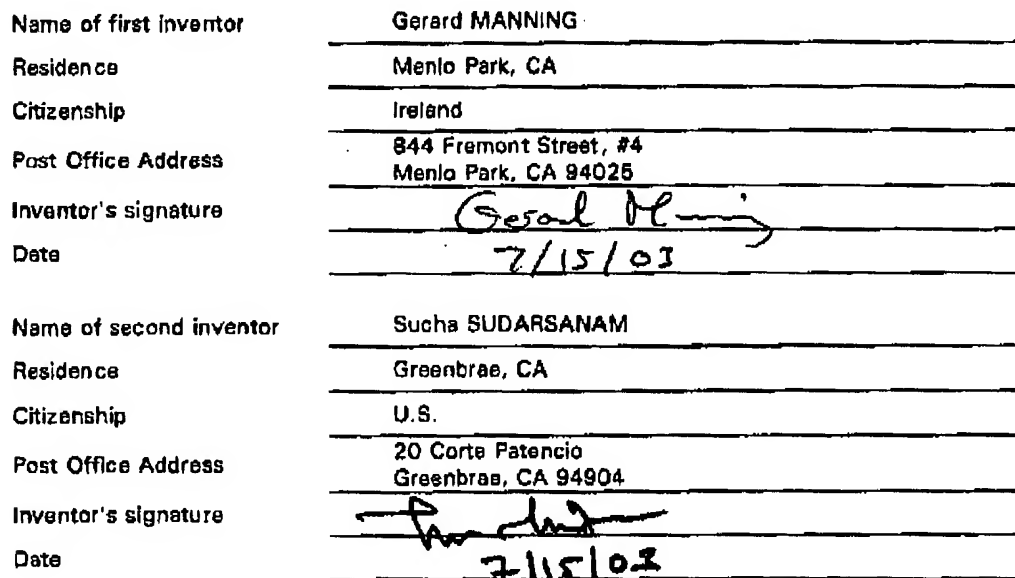 Name of first inventor Gerard MANNING
Residence Menlo Park, CA
Citizenship Ireland
Post Office Address 844 Fremont Street, #4
Menlo Park, CA 94025
Inventor's signature Gerard Manning
Date 7/15/03
Name of second inventor Sucha SUDARSANAM
Residence Greenbrae, CA
Citizenship U.S.
Post Office Address 20 Corte Patencio
Greenbrae, CA 94904
Inventor's signature
Date 7/15/03